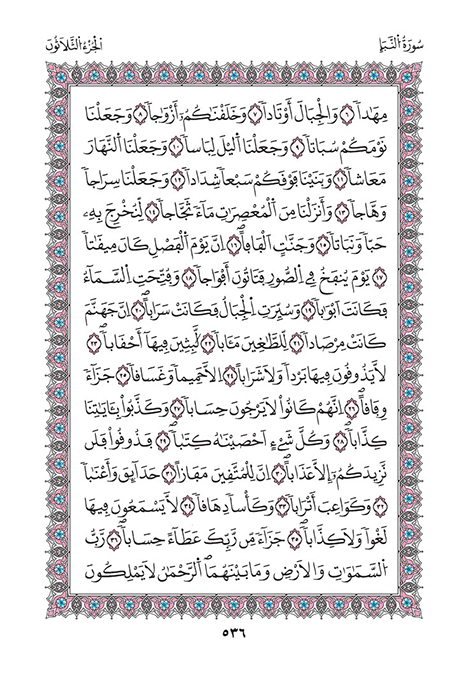 سُورَةُ النَّبَإِ
الجُزْءُ الثَّلَاثُونَ
مِهَٰداً ٦ وَالْجِبَالَ أَوْتَاداً ٧ وَخَلَقْنَٰكُمُۥٓ أَزْوَٰجاً ٨ وَجَعَلْنَا
نَوْمَكُمْ سُبَاتاً ٩ وَجَعَلْنَا اَلَّيْلَ لِبَاساً ١٠ وَجَعَلْنَا اَلنَّهَارَ
مَعَاشاً ١١ وَبَنَيْنَا فَوْقَكُمْ سَبْعاً شِدَاداً ١٢ وَجَعَلْنَا سِرَاجاً
وَهَّاجاً ١٣ وَأَنزَلْنَا مِنَ اَلْمُعْصِرَٰتِ مَآءً ثَجَّاجاً ١٤ لِّنُخْرِجَ بِهِۦ
حَبّاً وَنَبَاتاً ١٥ وَجَنَّٰتٍ أَلْفَافاً ١٦ اِنَّ يَوْمَ اَلْفَصْلِ كَانَ مِيقَٰتاً
١٧ يَوْمَ يُنفَخُ فِي اِلصُّورِ فَتَاتُونَ أَفْوَاجاً ١٨ وَفُتِّحَتِ اِلسَّمَآءُ
فَكَانَتَ اَبْوَٰباً ١٩ وَسُيِّرَتِ اِلْجِبَالُ فَكَانَتْ سَرَاباً ٢٠ اِنَّ جَهَنَّمَ
كَانَتْ مِرْصَاداً ٢١ لِّلطَّٰغِينَ مَـَٔاباً ٢٢ لَّٰبِثِينَ فِيهَآ أَحْقَاباً ٢٣
لَّا يَذُوقُونَ فِيهَا بَرْداً وَلَا شَرَاباً ٢٤ اِلَّا حَمِيماً وَغَسَاقاً ٢٥ جَزَآءً
وِفَاقاً ٢٦ اِنَّهُمْ كَانُواْ لَا يَرْجُونَ حِسَاباً ٢٧ وَكَذَّبُواْ بِـَٔايَٰتِنَا
كِذَّاباً ٢٨ وَكُلَّ شَےْءٍ اَحْصَيْنَٰهُ كِتَٰباً ٢٩ فَذُوقُواْ فَلَن
نَّزِيدَكُمُۥٓ إِلَّا عَذَاباً ٣٠ اِنَّ لِلْمُتَّقِينَ مَفَازاً ٣١ حَدَآئِقَ وَأَعْنَٰباً
٣٢ وَكَوَاعِبَ أَتْرَاباً ٣٣ وَكَأْساً دِهَاقاً ٣٤ لَّا يَسْمَعُونَ فِيهَا
لَغْواً وَلَا كِذَّٰباً ٣٥ جَزَآءً مِّن رَّبِّكَ عَطَآءً حِسَاباً ٣٦ رَّبُّ
اُلسَّمَٰوَٰتِ وَالْأَرْضِ وَمَا بَيْنَهُمَا اَلرَّحْمَٰنُ لَا يَمْلِكُونَ
٥٣٦